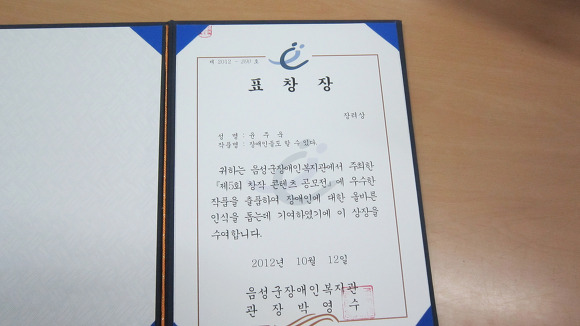 제 2012 - 200 호
표 창 장
장려상
성 명 : 윤 주 웅
작품명 : 장애인들도 할 수 있다
귀하는 음성군장애인복지관에서 주최한
『제5회 창작 콘텐츠 공모전』에 우수한
작품을 출품하여 장애인에 대한 올바른
인식을 돕는데 기여하였기에 이 상장을
수여합니다.
2012년 10월 12일
음성군장애인복지관
관 장 박 영 수